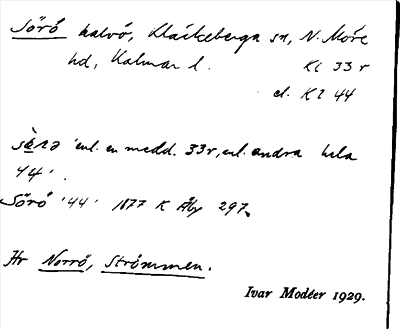 Sörö halvö, Kläckeberga sn, N. Möre
hd, Kalmar l. Kl 33 r
el. Kl 44
'enl. en medd. 33r, enl. andra hela
44'.
Sörö '44' 1877 K Åby 297.
Hr Norrö, Strömmen.
Ivar Modéer 1929.